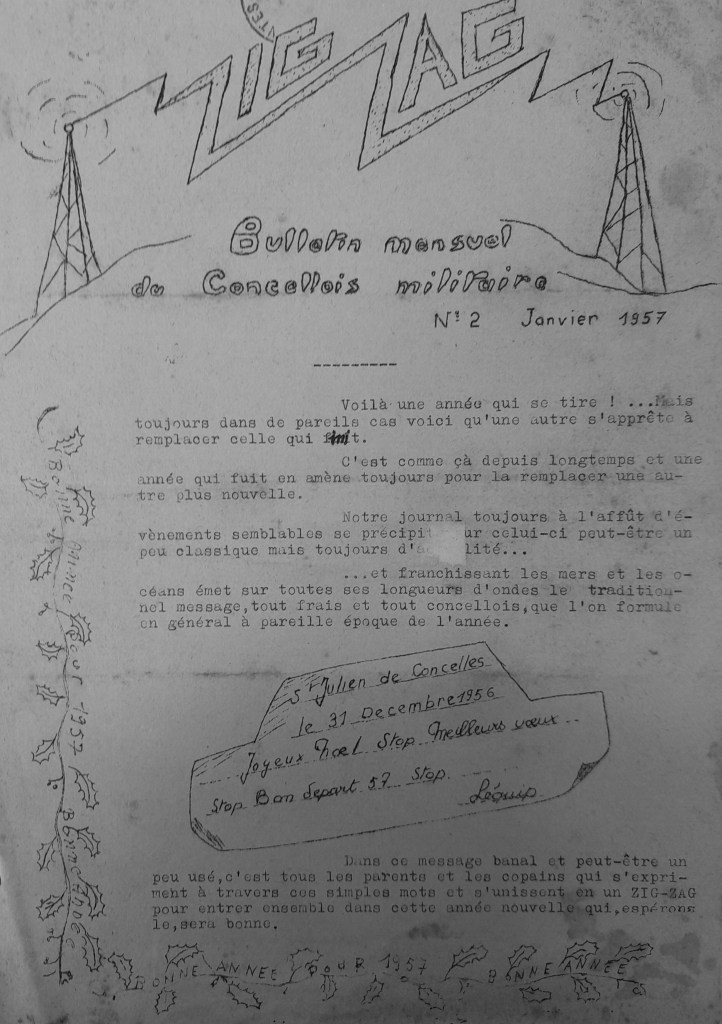 ZIG ZAG
Bulletin mensuel
du Concellois militaire
N° 2 Janvier 1957
---------
Voilà une année qui se tire ! ...Mais
toujours dans de pareils cas voici qu'une autre s'apprête à
remplacer celle qui
C'est comme çà depuis longtemps et une
année qui fuit en amène toujours pour la remplacer une au-
tre plus nouvelle.
Notre journal toujours à l'affût d'é-
vènements semblables se précipit ur celui-ci peut-être un
peu classique mais toujours d'a lité...
...et franchissant les mers et les o-
céans émet sur toutes ses longueurs d'ondes le tradition-
nel message,tout frais et tout concellois,que l'on formule
en général à pareille époque de l'année.
St Julien de Concelles
le 31 Decembre 1956
Joyeux Noel Stop Meilleurs vœux..
Stop Bon depart 57 Stop
Léquip
Dans ce message banal et peut-être un
peu usé,c'est tous les parents et les copains qui s'expri-
ment à travers ces simples mots et s'unissent en un ZIG-ZAG
pour entrer ensemble dans cette année nouvelle qui,espérons
le,sera bonne.
Bonne Année Pour 1957 Bonne Année
BONNE ANNEE POUR 1957 BONNE ANNEE